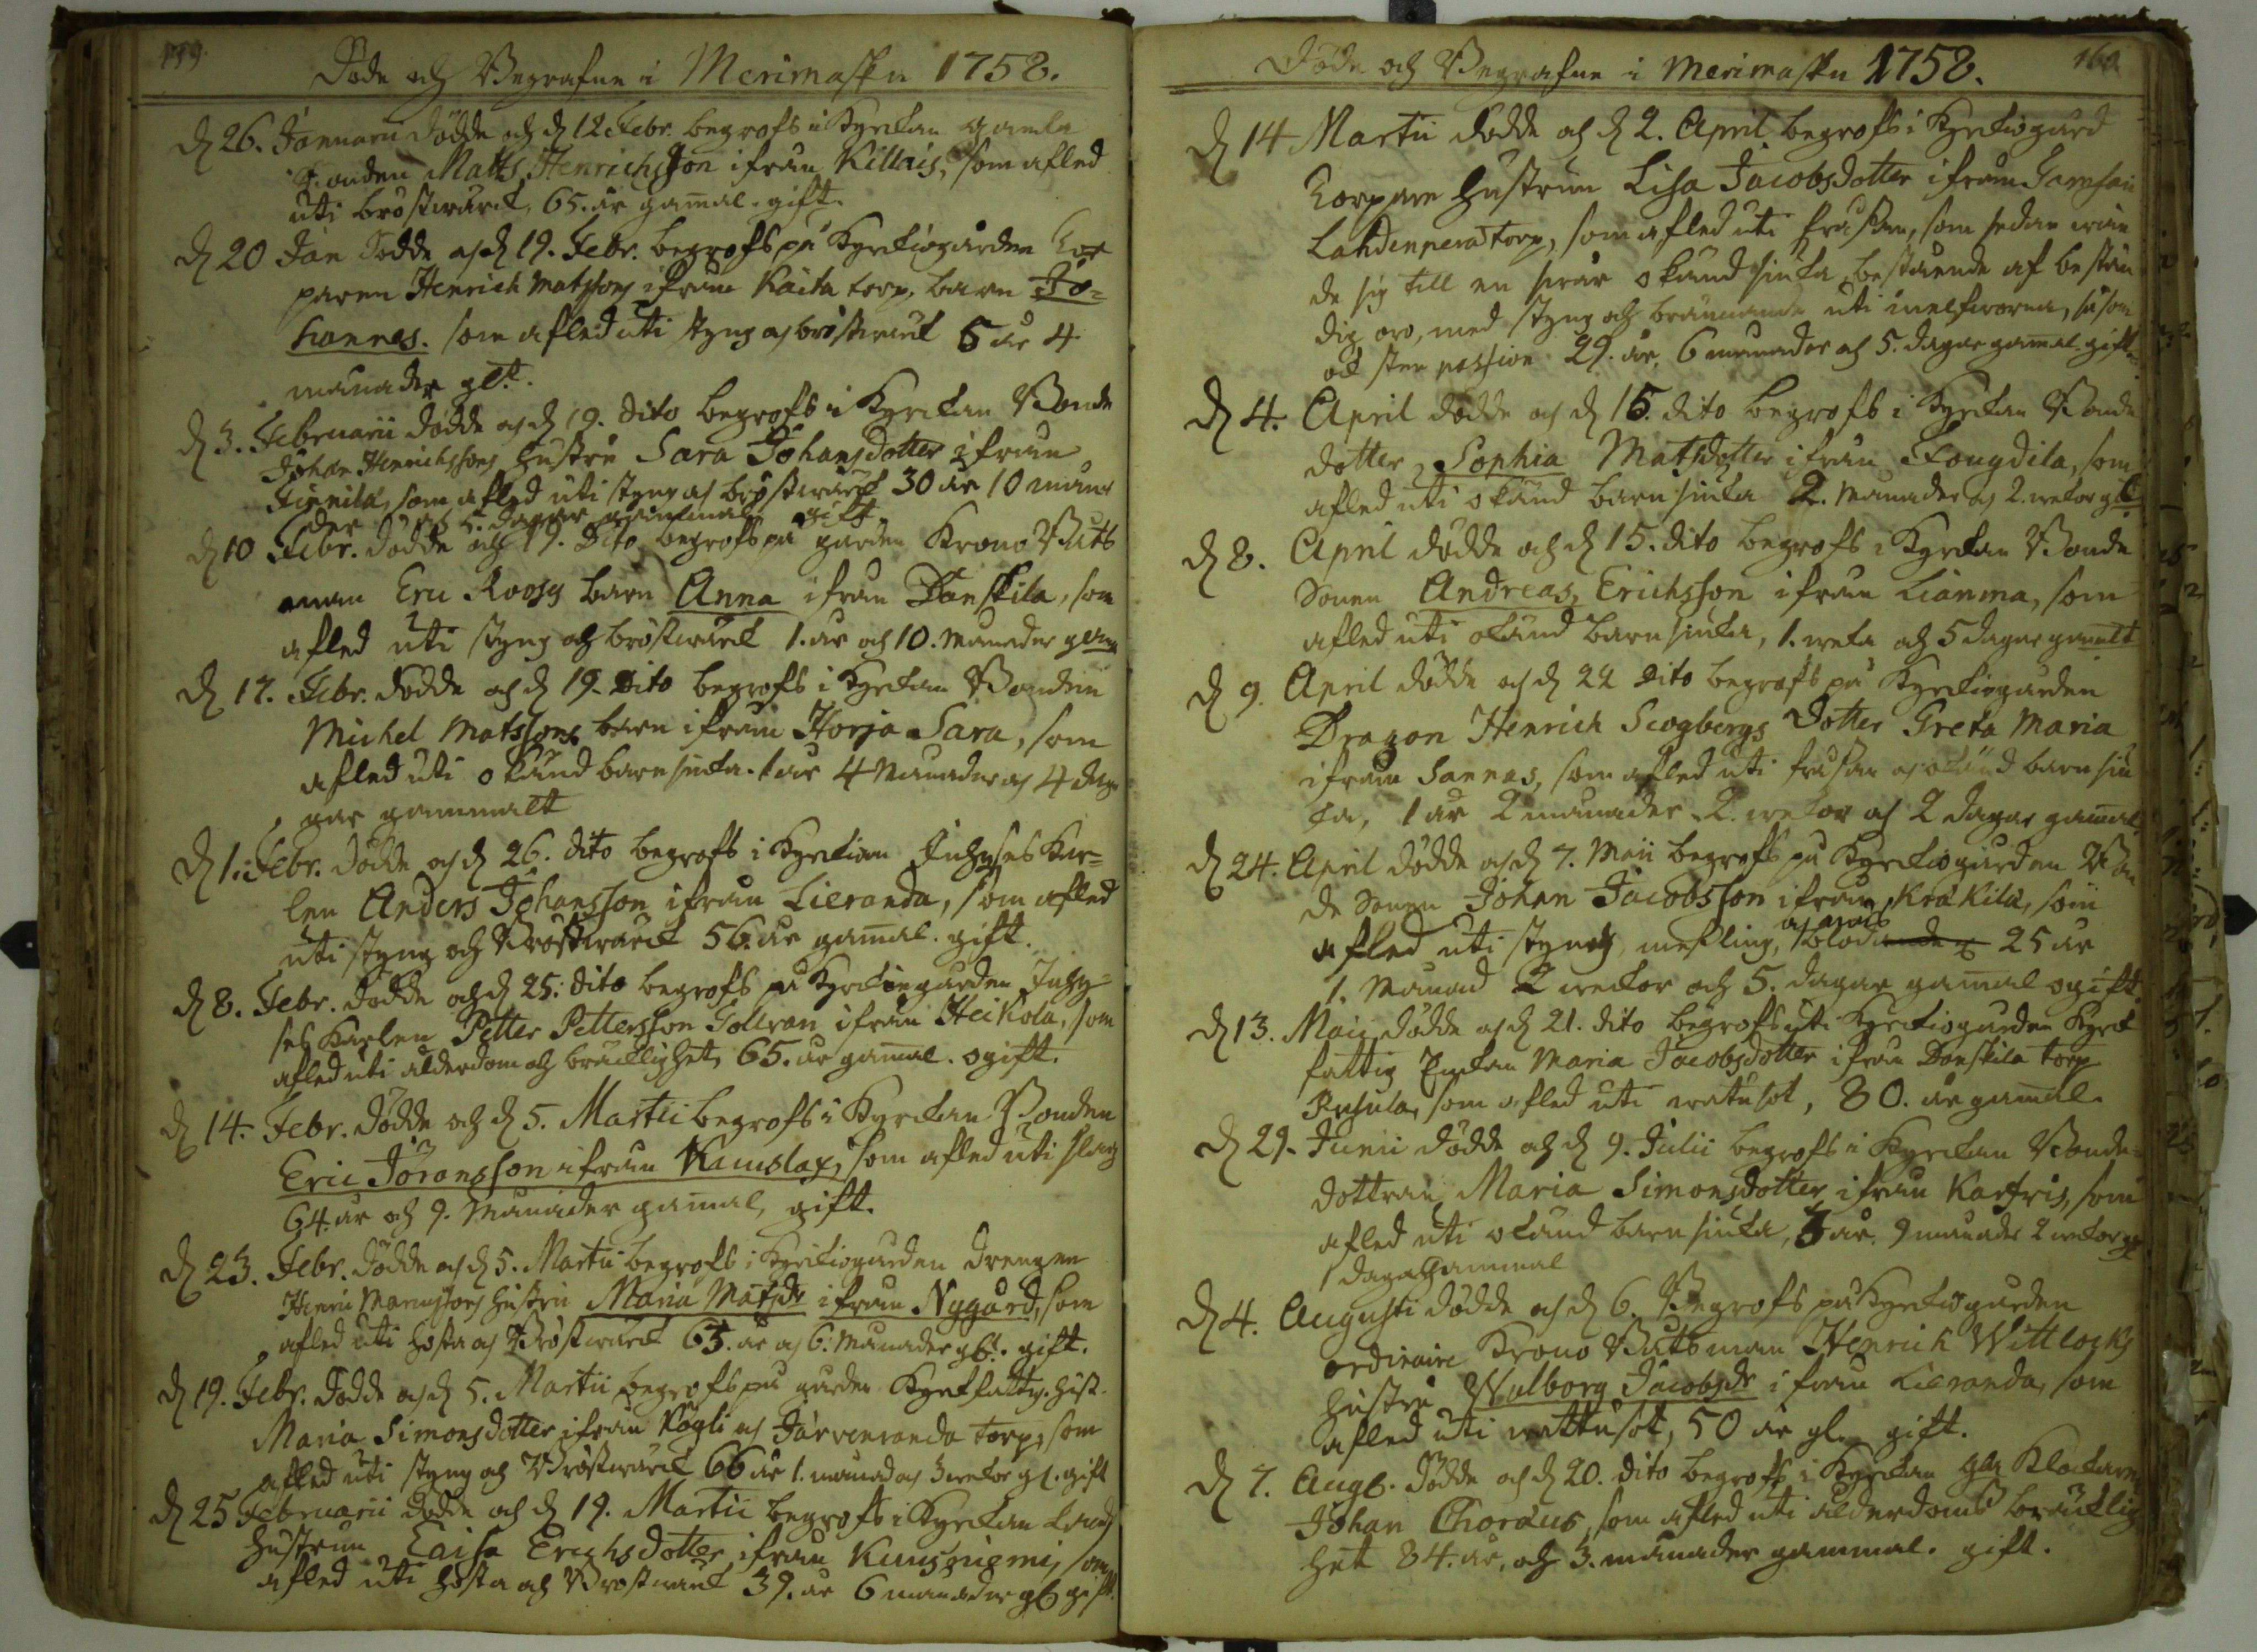 159.
Döde och Begrafne i Merimasku 1758.
D 26. Januarii dödde och d 12 Febr. begrofs i Kyrckan gamla
Bonden Matts Henrichsson ifrån Killais, som afled
uti bröstwärck, 65. år gamal. gift.
D 20 Jan dödde och d 19. Febr. begrofs på Kyrckiogården Tor
paren Henrich Matssons ifrån Kaita torp, barn Jo=
hannes. som afled uti styng och bröstwärck 5 år 4
månader glt.
D 3. Februarii dödde och d 19. dito begrofs i Kyrckan Bonde
Johan Henrichssons hustru Sara Johansdotter ifrån
som afled uti styng och bröstwärck 30 år 10 måna
der och 5. dagar gammal gift.
D 10 Febr. dödde och 19. Dito begrofs på gården Krono Båts
man Eric Roosg barn Anna ifrån Danskila, som
afled uti styng och bröstwärck 1. år och 10. Månader
D 17. Febr. dödde och d 19. Dito begrofs i Kyrckan Bonden
Michel Matssons barn ifrån Horja Sara, som
afled uti okänd barnsiuka. 1 år 4 Månader och 4 da
gar gammalt
D 1. Febr. dödde och d 26. dito begrofs i Kyrckian Inhyses Kar=
len Anders Johansson ifrån Lieranda, som afled
uti styng och Bröstwärck 56. år gamal. gift.
D 8. Febr. dödde och d 25. dito begrofs på Kyrckiogården Inhy=
ses Karlen Petter Pettersson ifrån Heikola, som
afled uti ålderdom och bräcklighet, 65. år gamal. ogift.
D 14. Febr. dödde och d 5. Martii begrofs i Kyrckan Bonden
Eric Jöransson ifrån Kamslax, som afled uti slag
64. år och 9. Månader gamal, gift.
D 23. Febr. dödde och d 5. Martii begrofs i Kyrckiogården drengen
Henric hustru Maria Matsdr ifrån Nygård, som
afled uti hosta och Bröstwärck 63. år och 6. Månader gl. gift.
D 19. Febr. dödde och d 5. Martii begrofs på gården Kyrkfattig. hust.
Maria Simonsdotter ifrån Kogli och Järvenranda torp, som
afled uti styng och Bröstwärck 66 år 1. månad och 3 wekor gl. gift
D 25 Februarii dödde och d 19. Martii begrofs i Kyrckan
hustrun Caisa Erichsdotter ifrån Kuusniemi, som
afled uti hosta och Bröstwärck 39. år 6 månader gl gift.
Döde och Begrafne i Merimasku 1758.
160.
D 14 Martii dödde och d 2. April begrofs i Kyrckiogård
Torpare hustrun Lisa Jacobsdotter ifrån
Lahdenperä torp, som afled uti frossan, som sedan wän
de sig till en swår okänd siuka bestående af bestän
dig oro, med styng och brännande uti inelfworna, såsom
ock sten passion 29. år, 6 månader och 5. dagar gamal. gift
D 4. April dödde och d 15. dito begrofs i Kyrckan Bonde
dotter, Sophia Matsdotter ifrån Fougdila, som
afled uti okänd barnsiuka 2. Månader och 2. wekor gl
D 8. April dödde och d 15. dito begrofs i Kyrckan Bonde
Sonen Andreas Erichsson ifrån Lianma, som
afled uti okänd barnsiuka, 1. weka och 5 dagar gamalt
D 9. April dödde och d 22 Dito begrofs på Kyrckiogården
Dragon Henrich Scogbergs dotter Greta Maria
ifrån Sannas, som afled uti frossan och okänd barnsiu
ka, 1 år 2 månader 2. wekor och 2 dagar gamal.
D 24. April dödde och d 7. Maii begrofs på Kyrckiogården Bon
de Sonen Johan Jacobsson ifrån Kråkila, som
afled uti styng, mesling, 25 år
1. Månad 2 weckor och 5. dagar gamal ogift.
D 13. Maii dödde och d 21. dito begrofs uti Kyrckiogården Kyrck
fattig Enckan Maria Jacobsdotter ifrån Danskila torp
som afled uti watusot, 80. år gamal.
D 29. Junii dödde och d 9. Julii begrofs i Kyrckan Bonde=
dottran Maria Simonsdotter ifrån Karfris, som
afled uti okänd barnsiuka, 3 år. 9 månader 2 wekor och
1 daga Gammal
D 4. Augusti dödde och d 6. Begrofs på Kyrckiogården
ordinaire Krono Båtsman Henrich Wittlocks
hustru Walborg Jacobsdr ifrån Lieranda, som
afled uti wattusot, 50 år gl. gift.
D 7. Aug. dödde och d 20. dito begrofs i Kyrckan gla Klockaren
Johan Choræus, som afled uti ålderdoms bräcklig
het 84. år, och 3. månader gammal. gift.